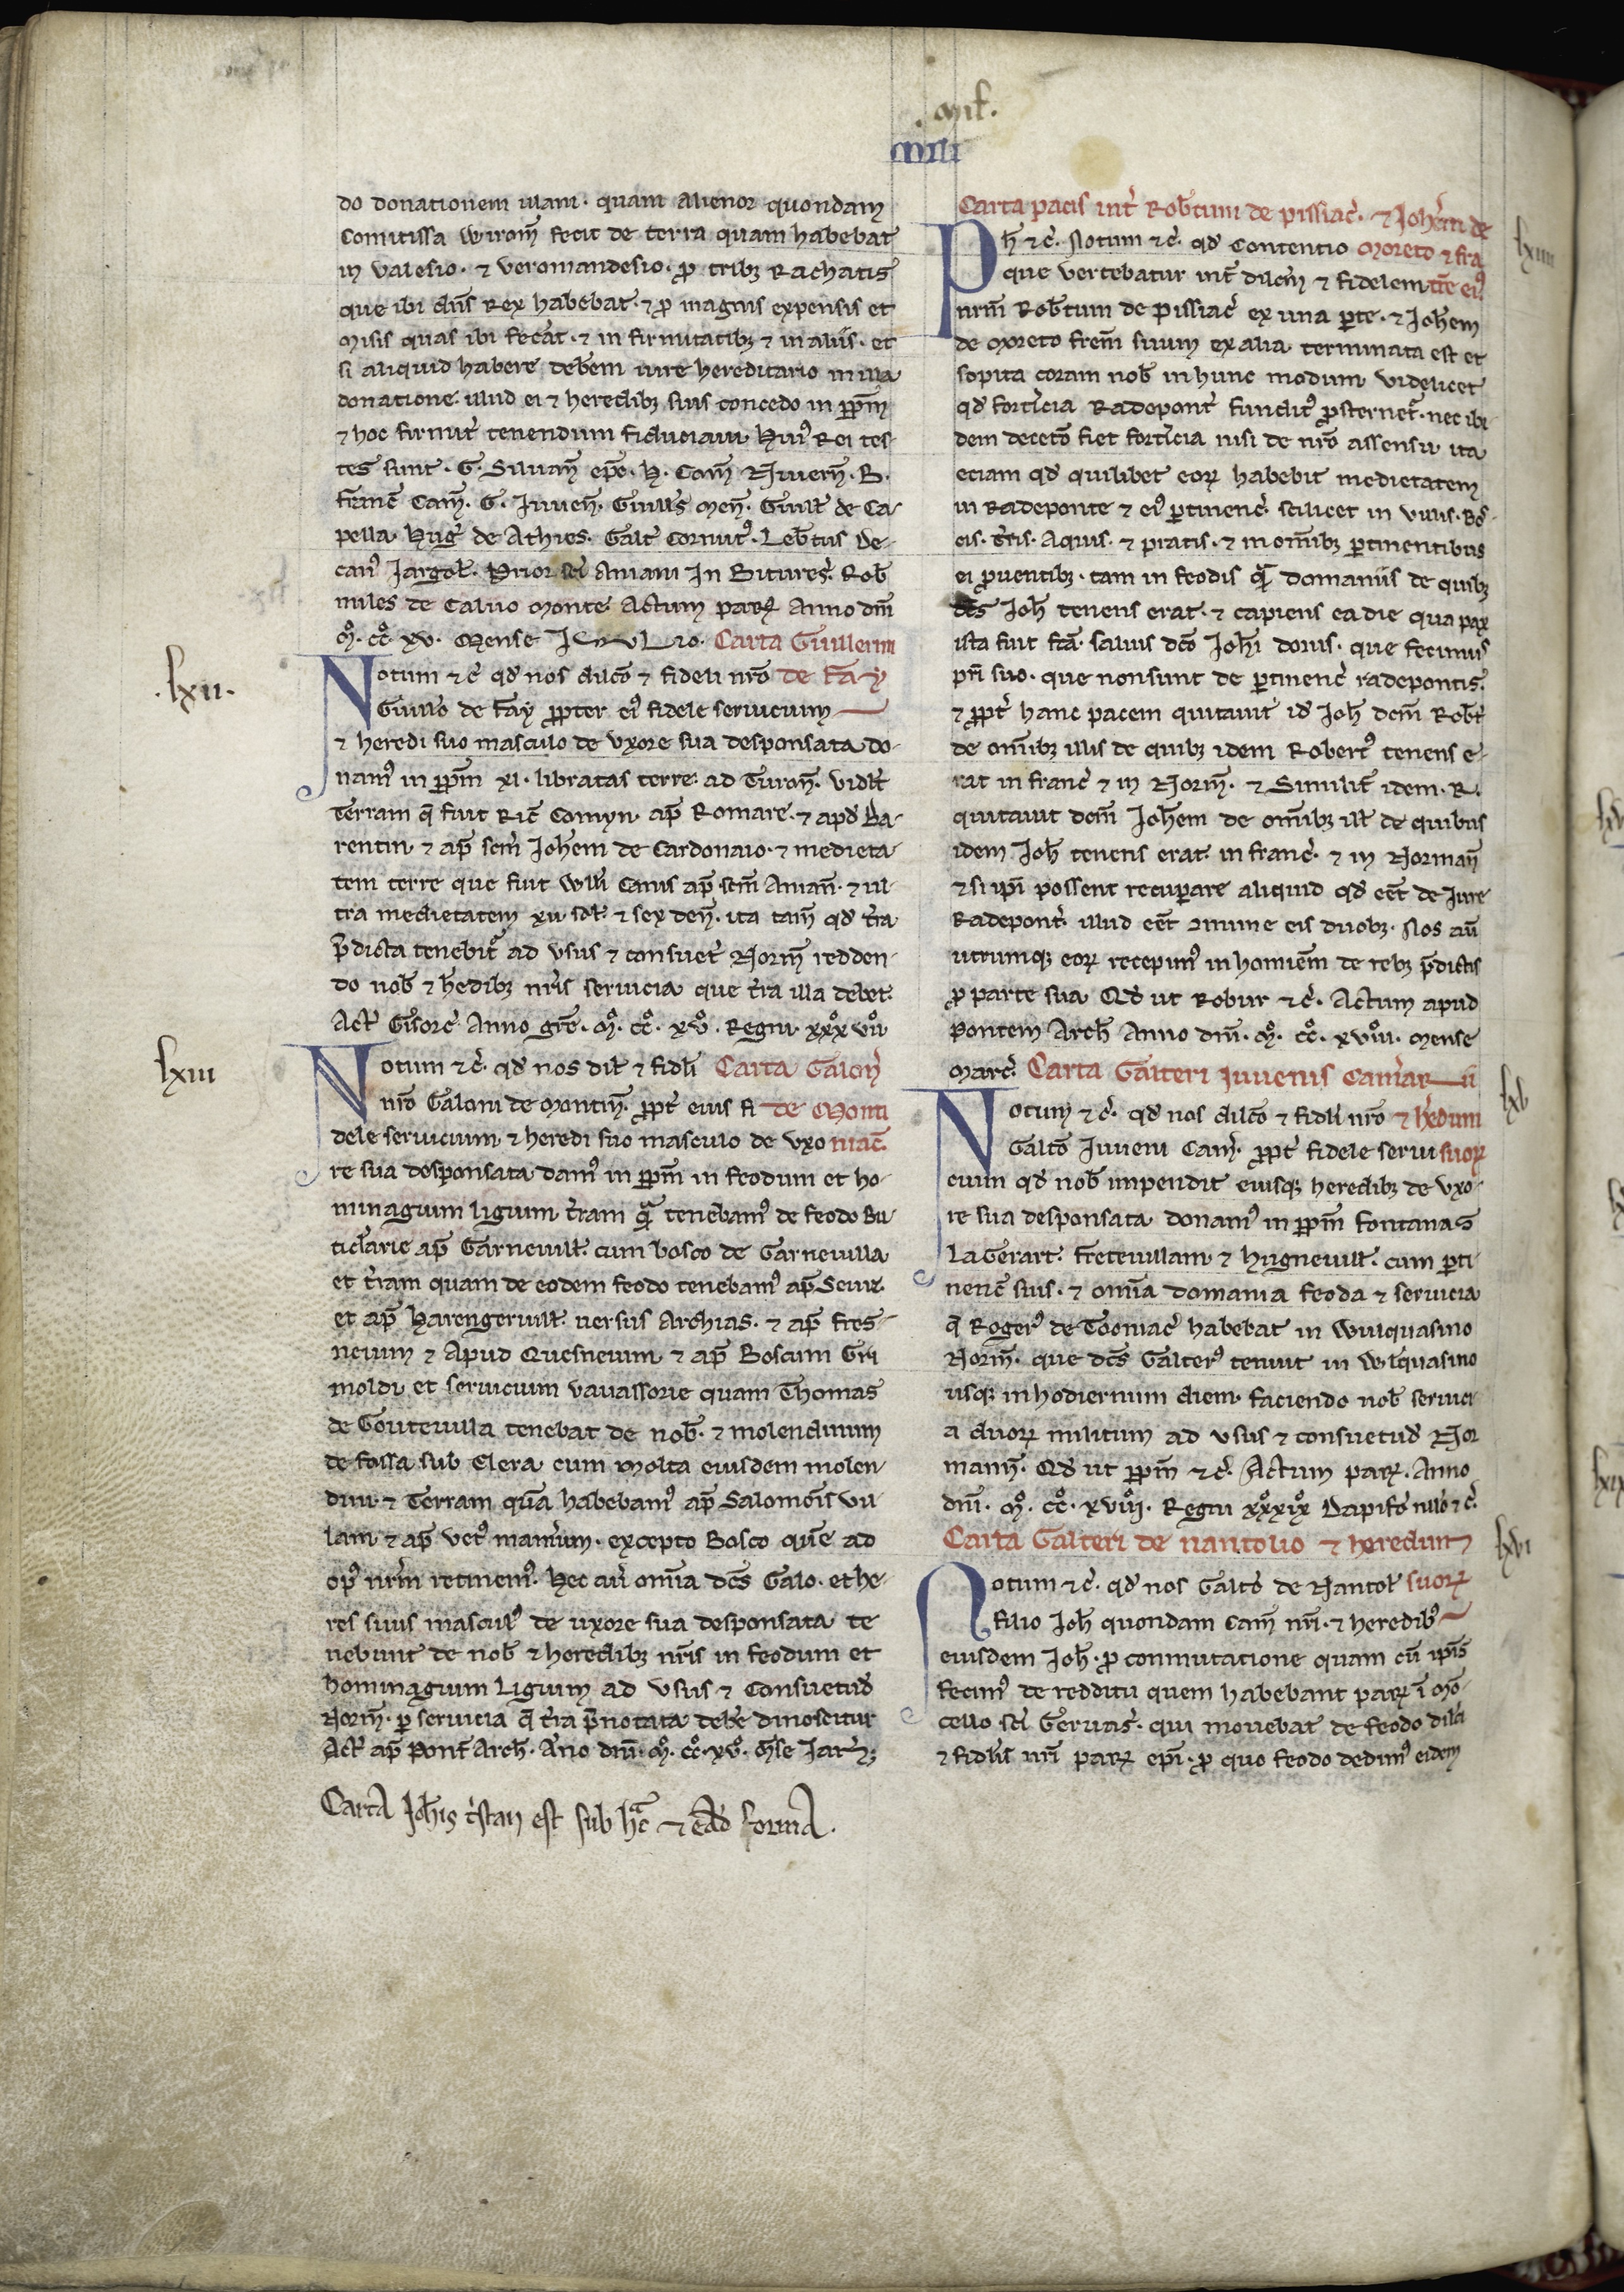 do donationem illam · quam alienor quondam
Comitissa Virom̄ fecit de terra quam habebat
in valesio · ⁊ veromandesio · ꝓ tribꝫ Rachatis
que ibi dn̄s Rex habebat · ⁊ ꝓ magnis expensis et
misis quas ibi fec̓at · ⁊ in firmitatibꝫ ⁊ in aliis · et
si aliquid habere deb̄em iure hereditario in illa
donatione · illud ei ⁊ heredibꝫ suis concedo in ꝑpm̄
⁊ hoc firmit̓ tenendum fiduciavi Huiꝰ Rei tes-
tes sunt · G · Silvan̄ ep̄c · H · Com̄ Nivern̄ · B ·
franc̄ Cam̄ · G · Iuven̄ · Guill̄s Men̄ · Guill̄ de Ca-
pella · Hug̓ de Athies · Galt̄ Cornutꝰ · Leb̄tus De-
canꝰ Iargol̄ · Prior sc̄i Aniani In Bitures̓ · Rob̄
miles de Calvo monte · Actum parisꝫ Anno dn̄i
M̊ · cc̊ · xv · Mense IULIO · Carta Guillermi
·lxii·
Notum ⁊c̓ qd̓ nos dilc̄o ⁊ fideli nr̄o de Fay
Guill̄o de Fay propter eiꝰ fidele servicium
⁊ heredi suo masculo de uxore sua desponsata do-
namꝰ in ꝑpm̄ xl · libratas terre · ad Turon̄ · videl̄t
Terram q̄ fuit Ric̄ Comyn · ap̄ Romare · ⁊ apd̓ Ba-
rentin ⁊ ap̄ sc̄m Ioh̄em de Cardonaio · ⁊ medieta-
tem terre que fuit Will̄i Canis ap̄ sc̄m Anian̄ · ⁊ ul-
tra medietatem xii sol̄ · ⁊ sex den̄ · ita tam̄ qd̓ t̓ra
p̄dicta tenebit̓ ad usus ⁊ consuet̓ Norm̄ redden-
do nob̄ ⁊ h̓edibꝫ nr̄is servicia que t̓ra illa debet ·
Act̓ Gisorc̓ Anno grc̄ · M̊ · cc̊ · xv̊ · Regni · xxxvii̊
lxiii
Notum ⁊c̓ · qd̓ nos dil̄ ⁊ fidl̄i Carta Galon̓
nr̄o Galoni de Montin̄ · ꝓpt̓ eius fi de Monti
dele servicium ⁊ heredi suo masculo de uxo niac̄
re sua desponsata damꝰ in ꝑpm̄ in feodum et ho-
minagium ligium t̓ram quā tenebamꝰ de feodo Bu-
ticl̄arie ap̄ Garnevill̄ · cum bosco de Garnevilla
et t̓ram quam de eodem feodo tenebamꝰ ap̄ Sevir ·
et ap̄ Harengervill̄ · versus Archias · ⁊ ap̄ fres-
neium ⁊ Apud Quesneium ⁊ ap̄ Boscum Gri
moldi et servicium vavassorie quam Thomas
de Goutevilla tenebat de nob̄ · ⁊ molendinum
de fossa sub Clera cum molta eiusdem molen-
dini · ⁊ Terram quā habebamꝰ ap̄ Salomonis vil-
lam ⁊ ap̄ vetꝰ man̓ium · excepto Bosco quē ad
opꝰ nr̄m retinemꝰ · Hec au̓ om̄ia dc̄s Galo · et he-
res suus masculꝰ de uxore sua desponsata te
nebunt de nob̄ ⁊ heredibꝫ nr̄is in feodum et
hominagium Ligium ad usus ⁊ Consuetud̓
Norm̄ · ꝑ servicia q̄ t̓ra p̄notata deb̄e dinoscitur
Act̓ ap̄ Pont̄ Arch̄ · A̓no dn̄i · M̊ · cc̊ · xv̊ · Mēse
Carta Ioh̄is t̓stan est sub hac ⁊ ead̓ forma ·
Carta pacis int̓ Rob̄tum de pissiac̓ · ⁊ Ioh̄em de
lxiiii
Ph̄ ⁊c̓ · Notum ⁊c̓ · qd̓ Contentio Moreto ⁊ fra
que vertebatur int̓ dilc̄m ⁊ fidelem tr̄e eiꝰ
nr̄m Rob̄tum de Pissiac̓ ex una ꝑte · ⁊ Ioh̄em
de Moreto fr̄em suum ex alia terminata est et
sopita coram nob̄ in hunc modum videlicet
qd̓ fort̓icia Radepont̓ fundit̓ ꝓsternet̓ · nec ibi-
dem decet̓o fiet fort̓icia nisi de nr̄o assensu ita
etiam qd̓ quilibet eorꝝ habebit medietatem
in Radeponte ⁊ eiꝰ ꝑtinenc̓ · scilicet in villis · Bos-
cis · t̓ris · Aquis · ⁊ pratis · ⁊ in om̄ibꝫ pertinentibus
ei ꝓventibꝫ · tam in feodis quā domaniis de quibꝫ
dc̄s Ioh̄ tenens erat · ⁊ capiens ea die qua pax
ista fuit fc̄a · salvis dc̄o Ioh̄i donis · que fecimus
pr̄i suo · que non sunt de ꝑtinenc̓ radepontis ·
⁊ ꝓpt̓ hanc pacem quitavit id̓ Ioh̄ dc̄m Rob̄t̓
de om̄ibꝫ illis de quibꝫ idem Robertꝰ tenens e-
rat in franc̓ ⁊ in Norm̄ · ⁊ Similit̓ idem · R ·
quitavit dc̄m Ioh̄em de om̄ibꝫ ill̄ de quibus
idem Ioh̄ tenens erat in franc̓ · ⁊ in Norman̄
⁊ si ip̄i possent recuꝑare aliquid qd̓ eēt de Iure
Radepont̓ · illud eēt ꝯmune eis duobꝫ · Nos au̓
utrumqꝫ eorꝝ recepimꝰ in homiēm de rebꝫ p̄dictis
ꝓ parte sua Qd̓ ut Robur ⁊c̓ · Actum apud
Pontem Arch̄ Anno dn̄i · M̊ · cc̊ · xviii̊ · Mense
Marc̓ · Carta Galteri Iuvenis cam̓ar ii
lxv
Notum ⁊c̓ · qd̓ nos dilc̄o ⁊ fidl̄i nr̄o ⁊ h̓edum
Galt̓o Iuveni Cam̓ · ꝓpt̓ fidele servi suorꝝ
cium qd̓ nob̄ impendit eiusqꝫ heredibꝫ de uxo-
re sua desponsata donamꝰ in ꝑpm̄ Fontanas
La Gerart · fretevillam ⁊ Hugnevill̄ · cum ꝑti-
nenc̄ suis · ⁊ om̄ia domania feoda ⁊ servicia
q̄ Rogerꝰ de Tooniac̓ habebat in Wilquasino
Norm̄ · que dc̄s Galterꝰ tenuit in Wilquasino
usqꝫ in hodiernum diem · faciendo nob̄ servici-
a duorꝝ militum ad usus ⁊ consuetud̓ Nor
mann̄ · Qd̓ ut ꝑpm̄ ⁊c̓ · Actum parisꝫ · Anno
dn̄i · M̊ · cc̊ · xviii̊ · Regni xxxix̊ Dapif̓o nullo ⁊c̓ ·
Carta Galteri de nantolio ⁊ heredum
lxvi
Notum ⁊c̓ · qd̓ nos Galt̓o de Nantol̄ suorꝝ
filio Ioh̄ quondam Cam̄ nr̄i · ⁊ heredibꝰ
eiusdem Ioh̄ · ꝓ conmutacione quam cū ip̄is
fecimꝰ de redditu quem habebant parisꝫ ī mō-
cello sc̄i Gervas̓ · qui movebat de feodo dilc̄i
⁊ fidl̄is nr̄i parisꝫ ep̄i · ꝓ quo feodo dedimꝰ eidem